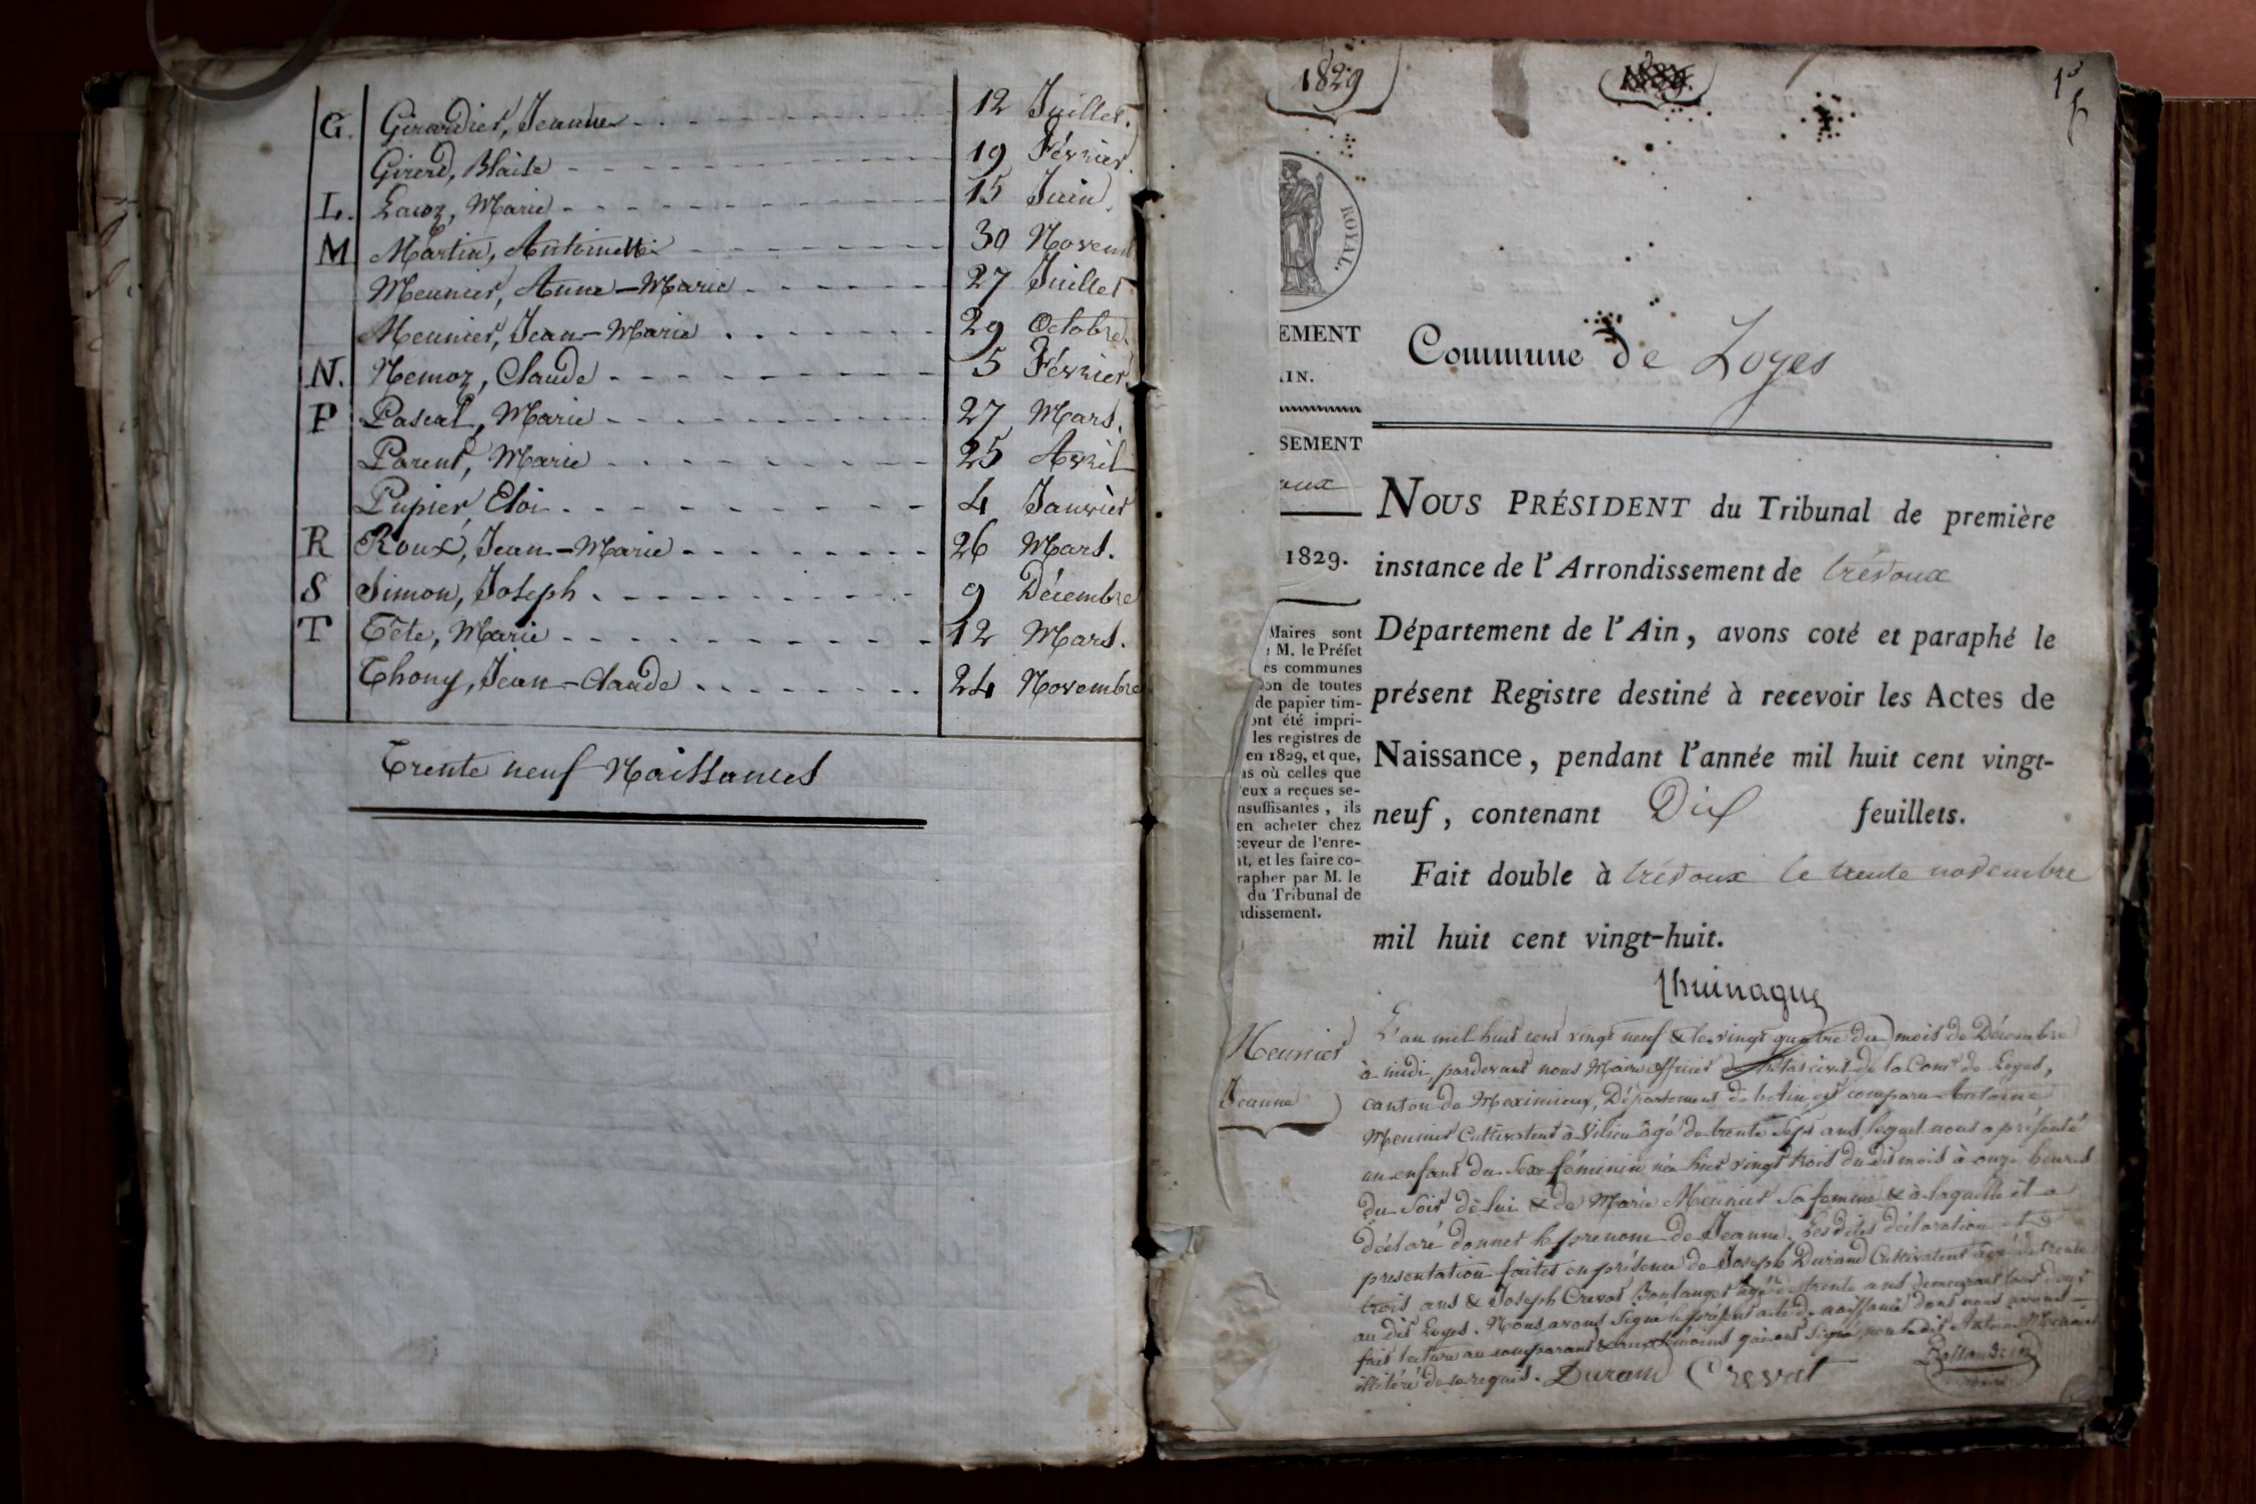 G. Girardier, Jeanne 12 Juillet.
Girerd, Blaise 19 Février
L. Lacoz, Marie 15 Juin.
M Martin, Antoinette 30 Novem
Meunier, Anne-Marie 27 Juillet
Meunier, Jean-Marie 29 Octobre.
N. Nemoz, Claude 5 Février.
P Pascal, Marie 27 Mars.
Parent, Marie 25 Avril
Pupier, Eloi 4 Janvier
R Roux, Jean-Marie 26 Mars.
S Simon, Joseph 9 Décembre
T Tête, Marie 12 Mars.
Thony, Jean-Claude 24 Novembre
Trente neuf Naissances
1829
1829.
ROYAL.
EMENT
IN.
SEMENT
aux
1829.
Maires sont
M. le Préfet
es communes
on de toutes
de papier tim-
ont été impri-
les registres de
en 1829, et que,
as où celles que
eux a reçues se-
nsuffisantes, ils
en acheter chez
ceveur de l'enre-
t, et les faire co-
rapher par M. le
du Tribunal de
dissement.
Commune de Loyes
NOUS PRÉSIDENT du Tribunal de première
instance de l'Arrondissement de trévoux
Département de l'Ain, avons coté et paraphé le
présent Registre destiné à recevoir les Actes de
Naissance, pendant l'année mil huit cent vingt-
neuf, contenant Dix feuillets.
Fait double à trévoux le trente novembre
mil huit cent vingt-huit.
Meunier
Jeanne
L'an mil huit cent vingt neuf & le vingt quatre du mois de Décembre
à midi, pardevant nous Maire officier de l'état civil de la Com.e de Loyes,
canton de Meximieux, Département de l'Ain, est comparu Antoine
Meunier Cultivateur à Vilieu âgé de trente sept ans, lequel nous a présenté
un enfant du sexe féminin née hier vingt trois du dit mois à onze heures
du soir de lui & de Marie Meunier sa femme & à laquelle il a
déclaré donner le prenom de Jeanne. Les dites déclaration et
presentation faites en présence de Joseph Durand Cultivateur âgé de trente
trois ans & Joseph Crevat Boulanger âgé de trente ans demeurant tous deux
au dit Loyes. Nous avons signé le présent acte de naissance dont nous avons
fait lecture au comparant & aux témoins qui ont signé, non le dit Antoine Meunier
illitéré de ce requis. Durand Crevat